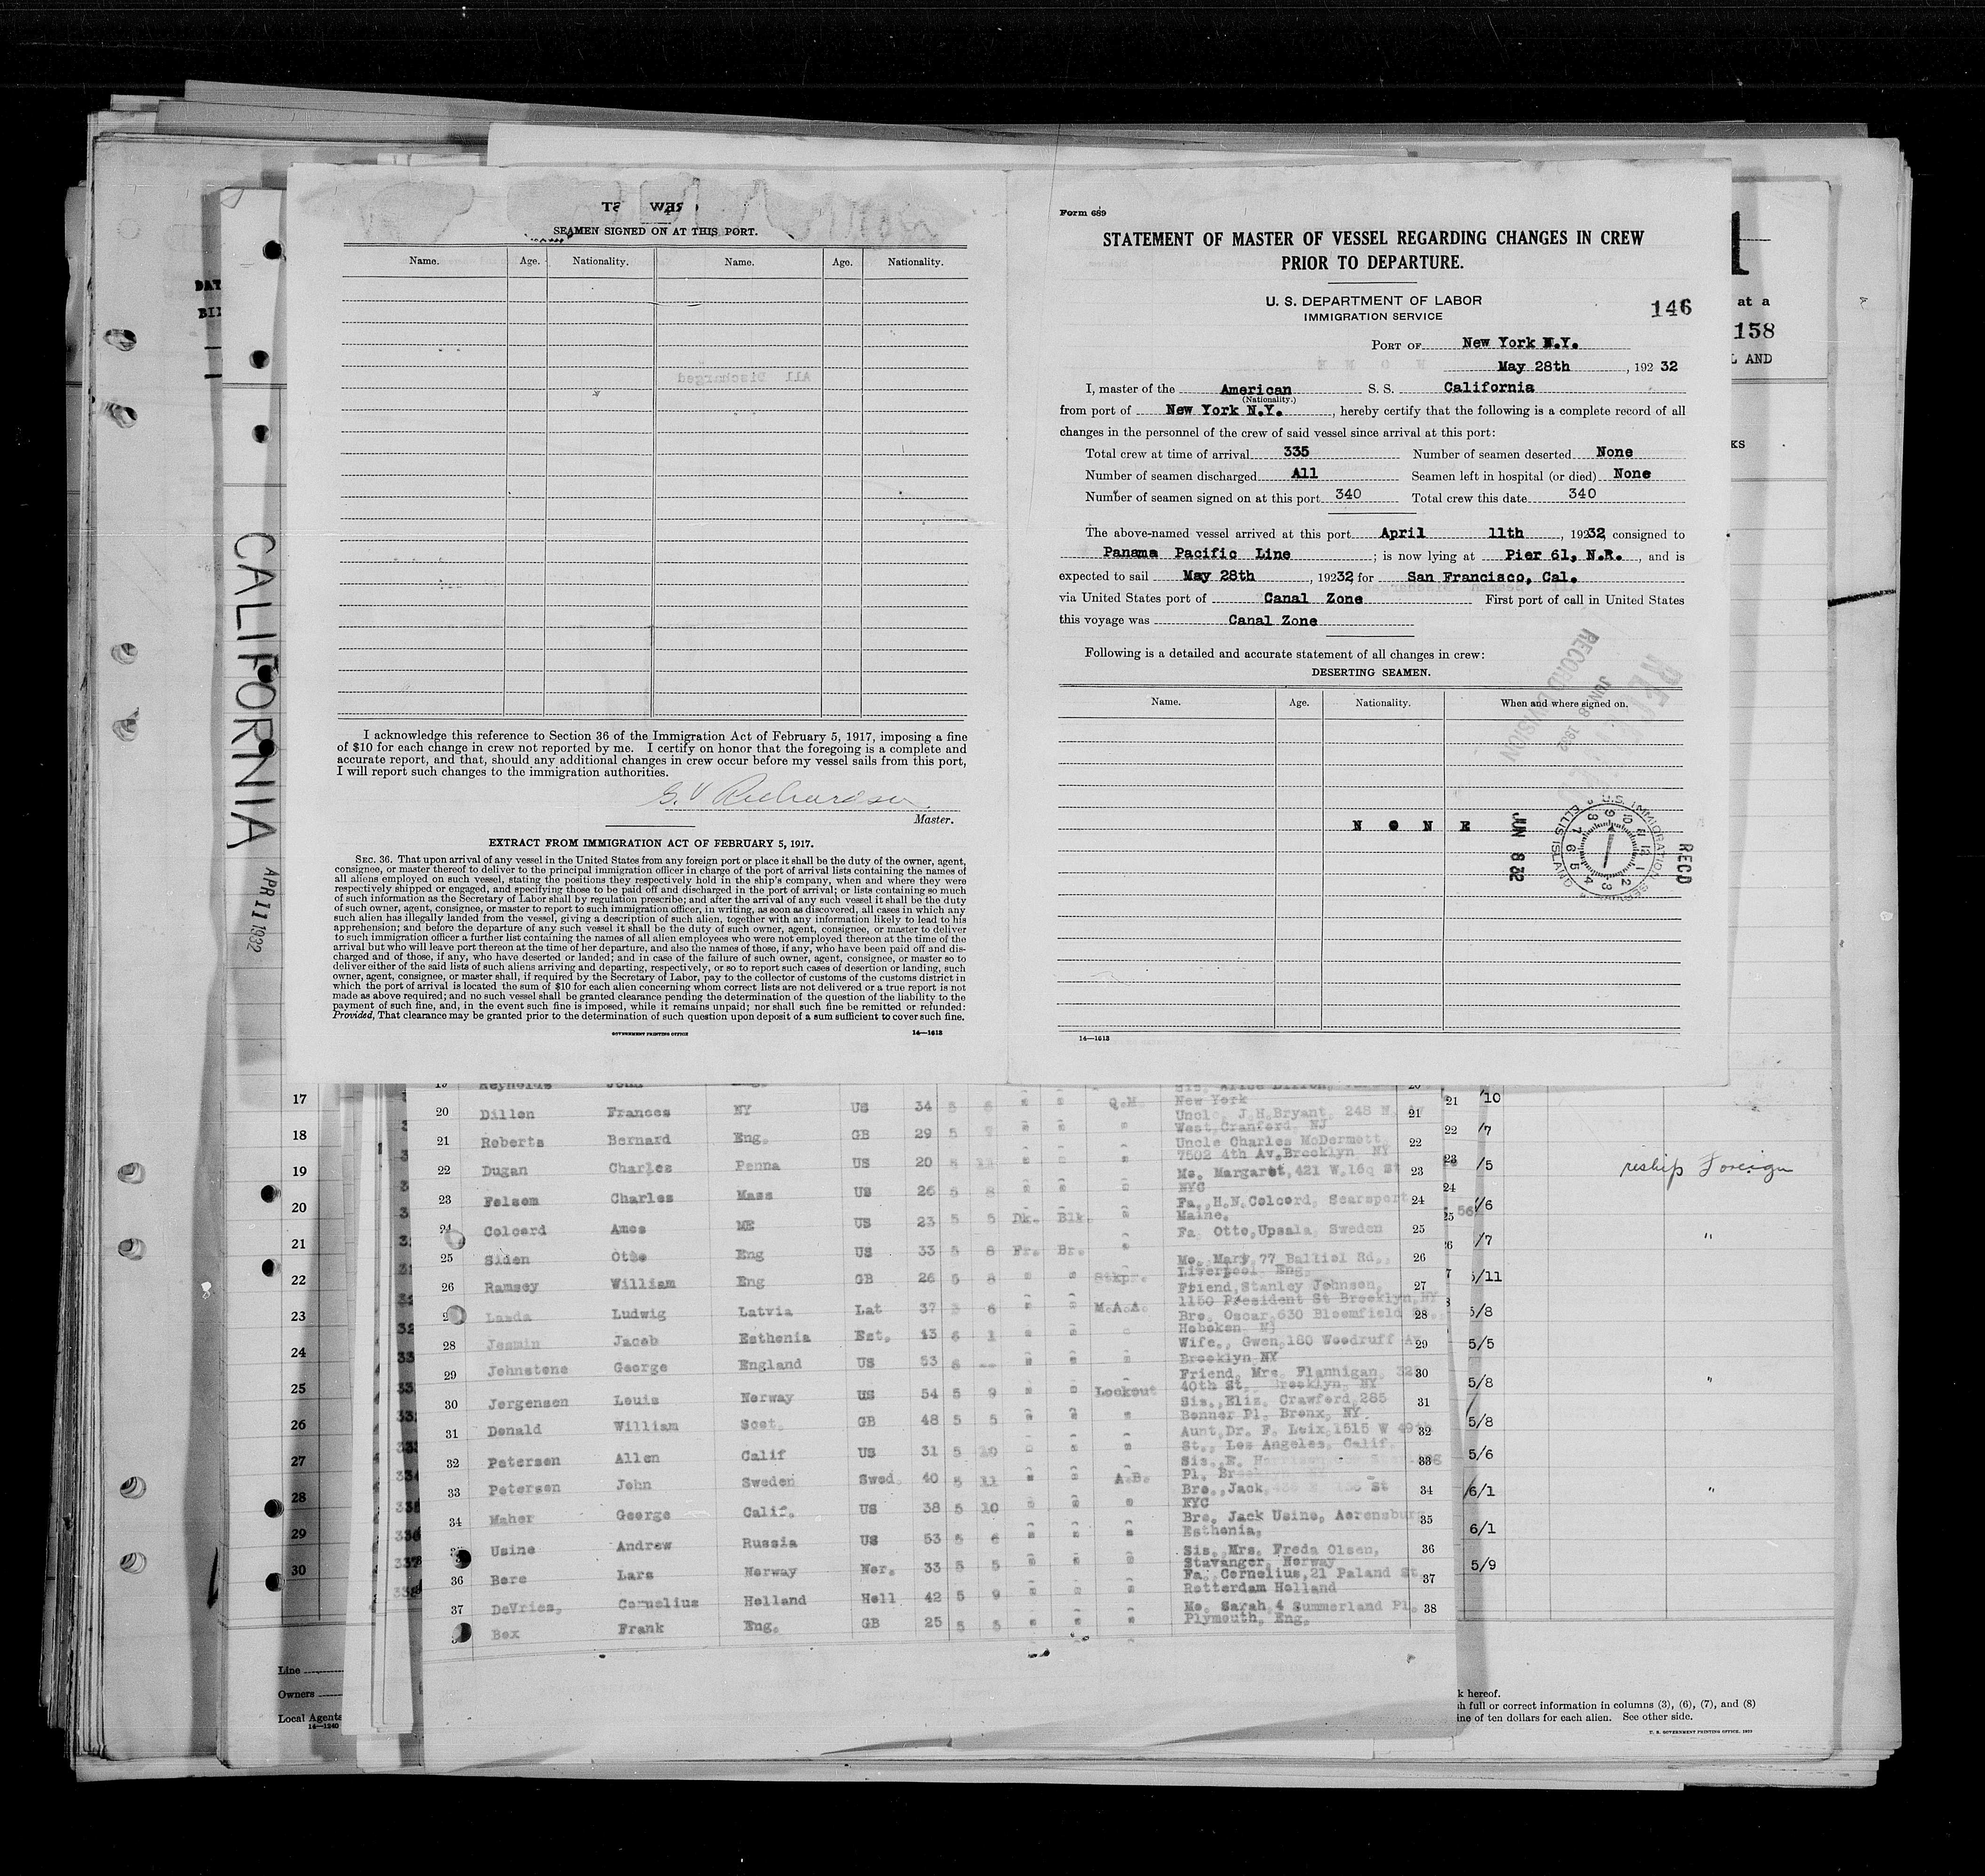 SEAMEN SIGNED ON AT THIS PORT.
Name. Age. Nationality. Name. Age. Nationality.
All Discharged
I acknowledge this reference to Section 36 of the Immigration Act of February 5, 1917, imposing a fine
of $10 for each change in crew not reported by me. I certify on honor that the foregoing is a complete and
accurate report, and that, should any additional changes in crew occur before my vessel sails from this port,
I will report such changes to the immigration authorities.
G. V Richardson
Master.
EXTRACT FROM IMMIGRATION ACT OF FEBRUARY 5, 1917.
SEC. 36. That upon arrival of any vessel in the United States from any foreign port or place it shall be the duty of the owner, agent,
consignee, or master thereof to deliver to the principal immigration officer in charge of the port of arrival lists containing the names of
all aliens employed on such vessel, stating the positions they respectively hold in the ship's company, when and where they were
respectively shipped or engaged, and specifying those to be paid off and discharged in the port of arrival; or lists containing so much
of such information as the Secretary of Labor shall by regulation prescribe; and after the arrival of any such vessel it shall be the duty
of such owner, agent, consignee, or master to report to such immigration officer, in writing, as soon as discovered, all cases in which any
such alien has illegally landed from the vessel, giving a description of such alien, together with any information likely to lead to his
apprehension; and before the departure of any such vessel it shall be the duty of such owner, agent, consignee, or master to deliver
to such immigration officer a further list containing the names of all alien employees who were not employed thereon at the time of the
arrival but who will leave port thereon at the time of her departure, and also the names of those, if any, who have been paid off and dis-
charged and of those, if any, who have deserted or landed; and in case of the failure of such owner, agent, consignee, or master so to
deliver either of the said lists of such aliens arriving and departing, respectively, or so to report such cases of desertion or landing, such
owner, agent, consignee, or master shall, if required by the Secretary of Labor, pay to the collector of customs of the customs district in
which the port of arrival is located the sum of $10 for each alien concerning whom correct lists are not delivered or a true report is not
made as above required; and no such vessel shall be granted clearance pending the determination of the question of the liability to the
payment of such fine, and, in the event such fine is imposed, while it remains unpaid; nor shall such fine be remitted or refunded:
Provided, That clearance may be granted prior to the determination of such question upon deposit of a sum sufficient to cover such fine.
GOVERNMENT PRINTING OFFICE 14—1613
Form 689
STATEMENT OF MASTER OF VESSEL REGARDING CHANGES IN CREW
PRIOR TO DEPARTURE.
U. S. DEPARTMENT OF LABOR
IMMIGRATION SERVICE
146
PORT OF New York N.Y.
May 28th, 192 32
I, master of the American S. S. California
(Nationality.)
from port of New York N.Y., hereby certify that the following is a complete record of all
changes in the personnel of the crew of said vessel since arrival at this port:
Total crew at time of arrival 335 Number of seamen deserted None
Number of seamen discharged All Seamen left in hospital (or died) None
Number of seamen signed on at this port 340 Total crew this date 340
The above-named vessel arrived at this port April 11th, 19232, consigned to
Panama Pacific Line; is now lying at Pier 61, N.R., and is
expected to sail May 28th, 19232, for San Francisco, Cal.
via United States port of Canal Zone First port of call in United States
this voyage was Canal Zone
Following is a detailed and accurate statement of all changes in crew:
DESERTING SEAMEN.
Name. Age. Nationality. When and where signed on.
N O N E
RECORD DIVISION
JUN 8 1932
JUN 8 32
U.S. IMMIGRATION ELLIS ISLAND
RECD
14—1613
CALIFORNIA
APR 11 1932
1
at a
158
AND
KS
17
18
19
20
21
22
23
24
25
26
27
28
29
30
19 Reynolds John
20 Dillon Frances NY US 34 5 6 Q.M. New York
Uncl J.H.Bryant, 248 N.
21 Roberts Bernard Eng. GB 29 5 West Cranford, NJ
Uncle Charles McDermott
22 Dugan Charles Penna US 20 5 11 7502 4th Av,Brooklyn NY
23 Folsom Charles Mass US 26 5 8 Mo. Margaret, 421 W.16 St
NYC
24 Colcord Amos ME US 23 5 5 Dk. Blk. Fa., H.N.Colcord, Searsport
Maine.
25 Siden Otto Eng US 33 5 8 Fr. Br. Fa Otto,Upsala, Sweden
26 Ramsey William Eng GB 26 5 8 Stkpr. Mo. Mary,77 Balliol Rd.,
Liverpool Eng.
Landa Ludwig Latvia Lat 37 5 6 M.A.A. Friend,Stanley Johnson,
1150 President St Brooklyn,NY
28 Jesmin Jacob Esthonia Est. 43 5 1 Bro. Oscar,630 Bloomfield
Hoboken NJ
29 Johnstone George England US 53 5 Wife., Gwen,180 Woodruff Av
Brooklyn NY
30 Jorgensen Louis Norway US 54 5 9 Lookout Friend, Mrs. Flannigan, 325
40th St., Brooklyn, NY
31 Donald William Scot. GB 48 5 5 Sis.,Eliz. Crawford,285
Bonner Pl. Bronx, NY
32 Petersen Allen Calif US 31 5 10 Aunt,Dr. F. Leix,1515 W 49th
St., Los Angeles, Calif.
33 Petersen John Sweden Swed. 40 5 11 A.B. Sis.,E.
Pl, Br
34 Maher George Calif. US 38 5 10 Bro.,Jack, St
NYC
Usine Andrew Russia US 53 5 6 Bro. Jack Usine, Aerensburg
Esthonia,
36 Bore Lars Norway Nor. 33 5 5 Sis. Mrs. Freda Olsen,
Stavanger, Norway
37 DeVries, Cornelius Holland Holl 42 5 9 Fa. Cornelius,21 Paland St
Rotterdam Holland
Box Frank Eng. GB 25 5 5 Mo. Sarah 4 Summerland Pl.
Plymouth, Eng.
21
22
23
24
25
26
27
28
29
30
31
32
33
34
35
36
37
38
/10
/7
/5
reship Foreign
/6
/7 "
5/11
5/8
5/5
5/8 "
5/8
5/6
6/1 "
6/1
5/9
Line
Owners
Local Agents
14—1240
k hereof.
full or correct information in columns (3), (6), (7), and (8)
ine of ten dollars for each alien. See other side.
U. S. GOVERNMENT PRINTING OFFICE